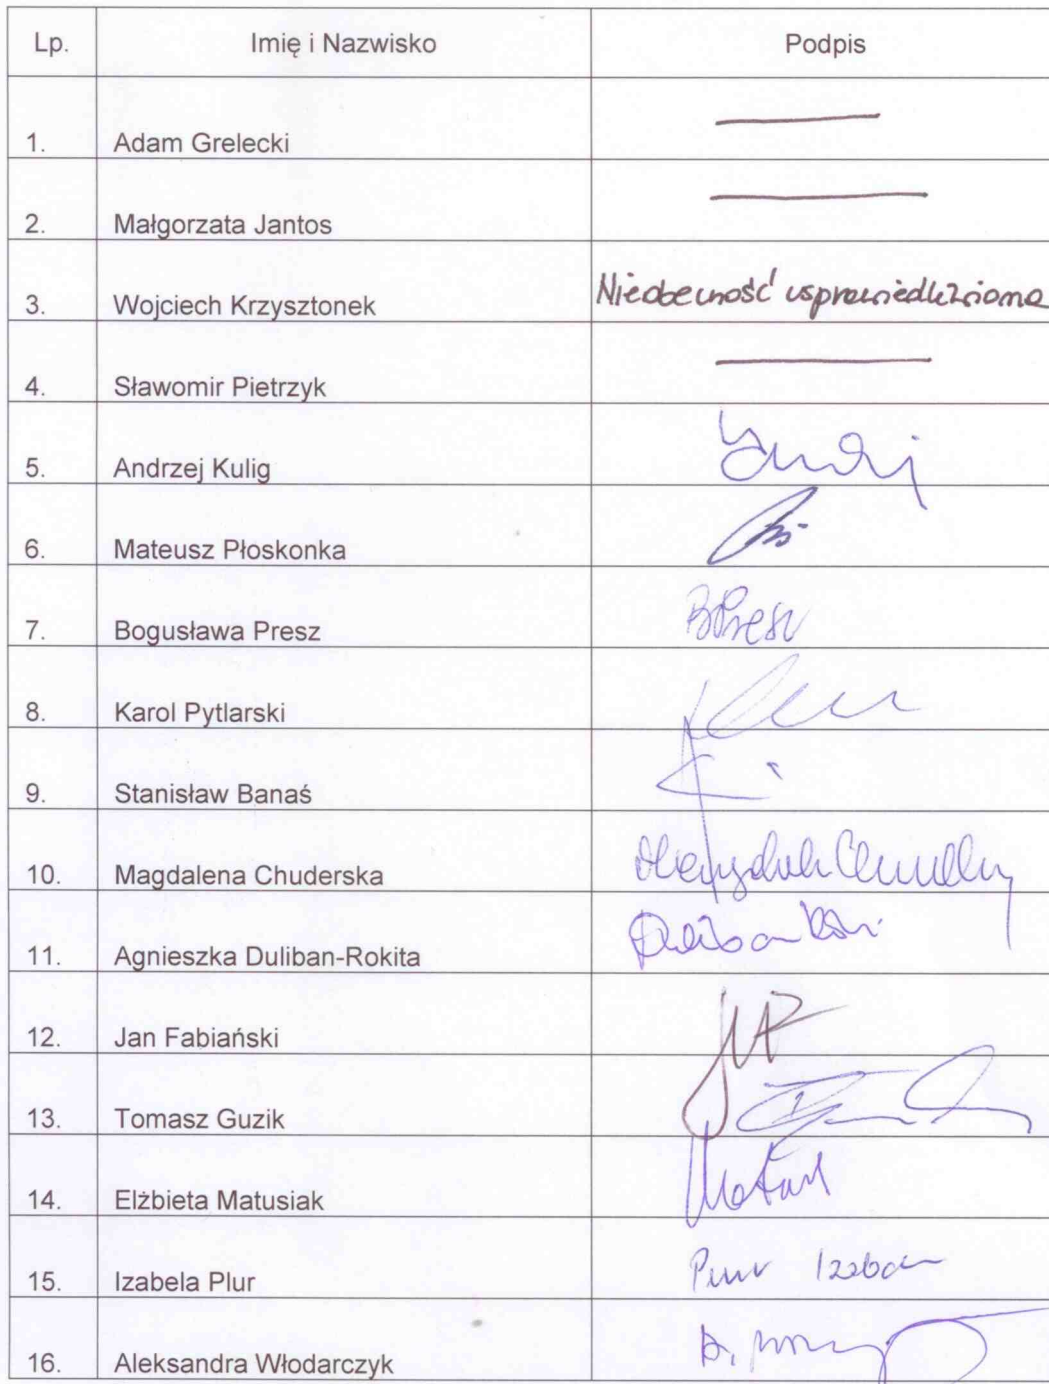 Lp. Imię i Nazwisko Podpis
1. Adam Grelecki
2. Małgorzata Jantos
3. Wojciech Krzysztonek Nieobecność usprawiedliwiona
4. Sławomir Pietrzyk
5. Andrzej Kulig
6. Mateusz Płoskonka
7. Bogusława Presz BPresz
8. Karol Pytlarski
9. Stanisław Banaś
10. Magdalena Chuderska
11. Agnieszka Duliban-Rokita
12. Jan Fabiański
13. Tomasz Guzik
14. Elżbieta Matusiak
15. Izabela Plur Plur Izabela
16. Aleksandra Włodarczyk